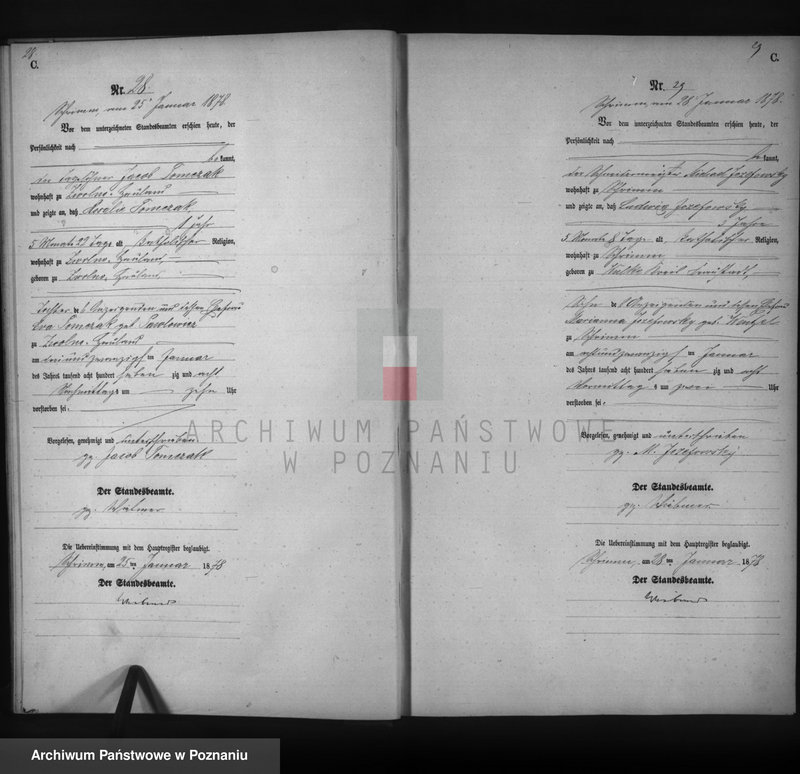 28
C.
Nr. 28.
Schrimm, am 25 Januar 1878.
Vor dem unterzeichneten Standesbeamten erschien heute, der
Persönlichkeit nach
be kannt,
der Tagelöhner Jacob Tomczak
wohnhaft zu Zwolno-Hauland
und zeigte an, daß Rosalie Tomczak,
1 Jahr
5 Monate 23 Tage alt, katholischer Religion,
wohnhaft zu Zwolno Hauland,
geboren zu Zwolno Hauland,
Tochter des Anzeigenden und dessen Ehefrau
Eva Tomczak geb. Pawlowicz
zu Zwolno-Hauland
am dreiundzwanzigsten Januar
des Jahres tausend acht hundert sieben zig und acht
Nachmittags um zehn Uhr
verstorben sei
Vorgelesen, genehmigt und unterschrieben
gz. Jacob Tomczak
Der Standesbeamte.
gz.
Die Uebereinstimmung mit dem Hauptregister beglaubigt.
Schrimm, am 25 ten Januar 1878
Der Standesbeamte.
C.
Nr. 29
Schrimm, am 28 Januar 1878.
Vor dem unterzeichneten Standesbeamten erschien heute, der
Persönlichkeit nach
be kannt,
der Schneidermeister Michael Jozefowsky
wohnhaft zu Schrimm
und zeigte an, daß Ludwig
Jahre
5 Monate 8 Tage alt, katholischer Religion,
wohnhaft zu Schrimm
geboren zu
Sohn des Anzeigenden und dessen Ehefrau
Marianna Jozefowsky geb.
zu Schrimm
am achtundzwanzigsten Januar
des Jahres tausend acht hundert sieben zig und acht
Vormittags um zwei Uhr
verstorben sei.
Vorgelesen, genehmigt und unterschrieben
gz. M. Jozefowsky
Der Standesbeamte.
gz.
Die Uebereinstimmung mit dem Hauptregister beglaubigt.
Schrimm, am 28 ten Januar 1878
Der Standesbeamte.
ARCHIWUM PAŃSTWOWE
W POZNANIU
Archiwum Państwowe w Poznaniu